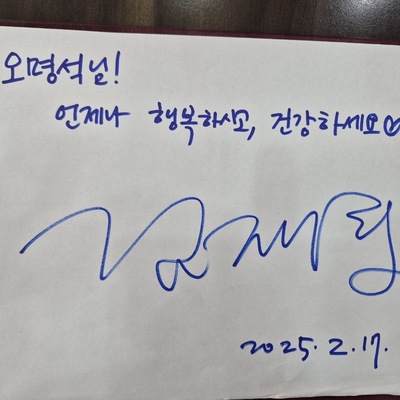 오명석님!
언제나 행복하시고, 건강하세요♡
2025. 2. 17.